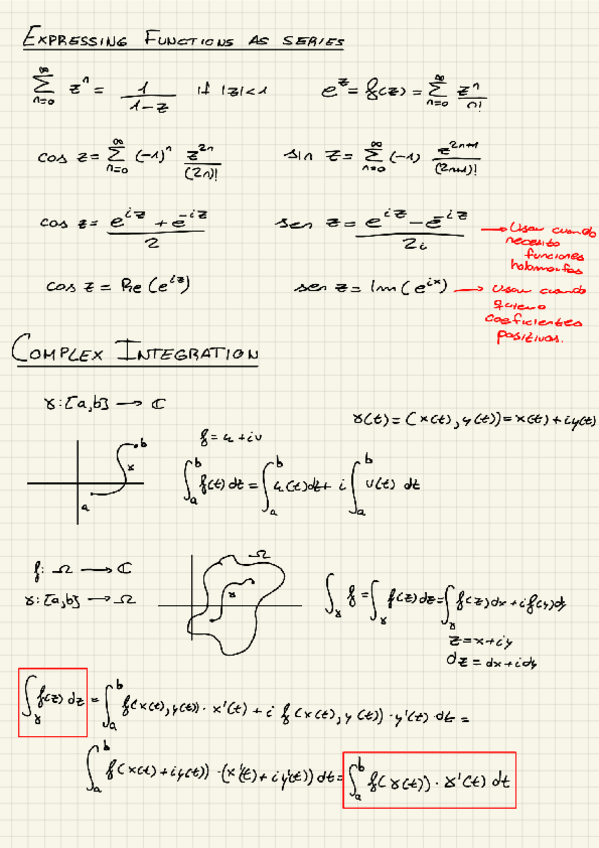 EXPRESSING FUNCTIONS AS SERIES
∑_{n=0}^{∞} z^n = 1/(1-z) if |z|<1    e^z = f(z) = ∑_{n=0}^{∞} z^n/n!
cos z = ∑_{n=0}^{∞} (-1)^n z^{2n}/(2n)!    sin z = ∑_{n=0}^{∞} (-1) z^{2n+1}/(2n+1)!
cos z = (e^{iz} + e^{-iz})/2    sen z = (e^{iz} - e^{-iz})/2i
→ Usar cuando
necesito
funciones
holomorfas
cos z = Re(e^{iz})    sen z = Im(e^{ix})
→ Usar cuando
quiero
coeficientes
positivos.
COMPLEX INTEGRATION
γ:[a,b] → ℂ
γ(t) = (x(t), y(t)) = x(t) + iy(t)
b
γ
a
f = u + iv
∫_a^b f(t) dt = ∫_a^b u(t) dt + i ∫_a^b v(t) dt
f: Ω → ℂ
γ:[a,b] → Ω
Ω
γ
∫_γ f = ∫_γ f(z) dz = ∫_γ f(z) dx + i f(y) dy
z = x + iy
dz = dx + idy
∫_γ f(z) dz = ∫_a^b f(x(t), y(t)) · x'(t) + i f(x(t), y(t)) · y'(t) · dt =
∫_a^b f(x(t) + iy(t)) · (x'(t) + iy'(t)) dt = ∫_a^b f(γ(t)) · γ'(t) dt